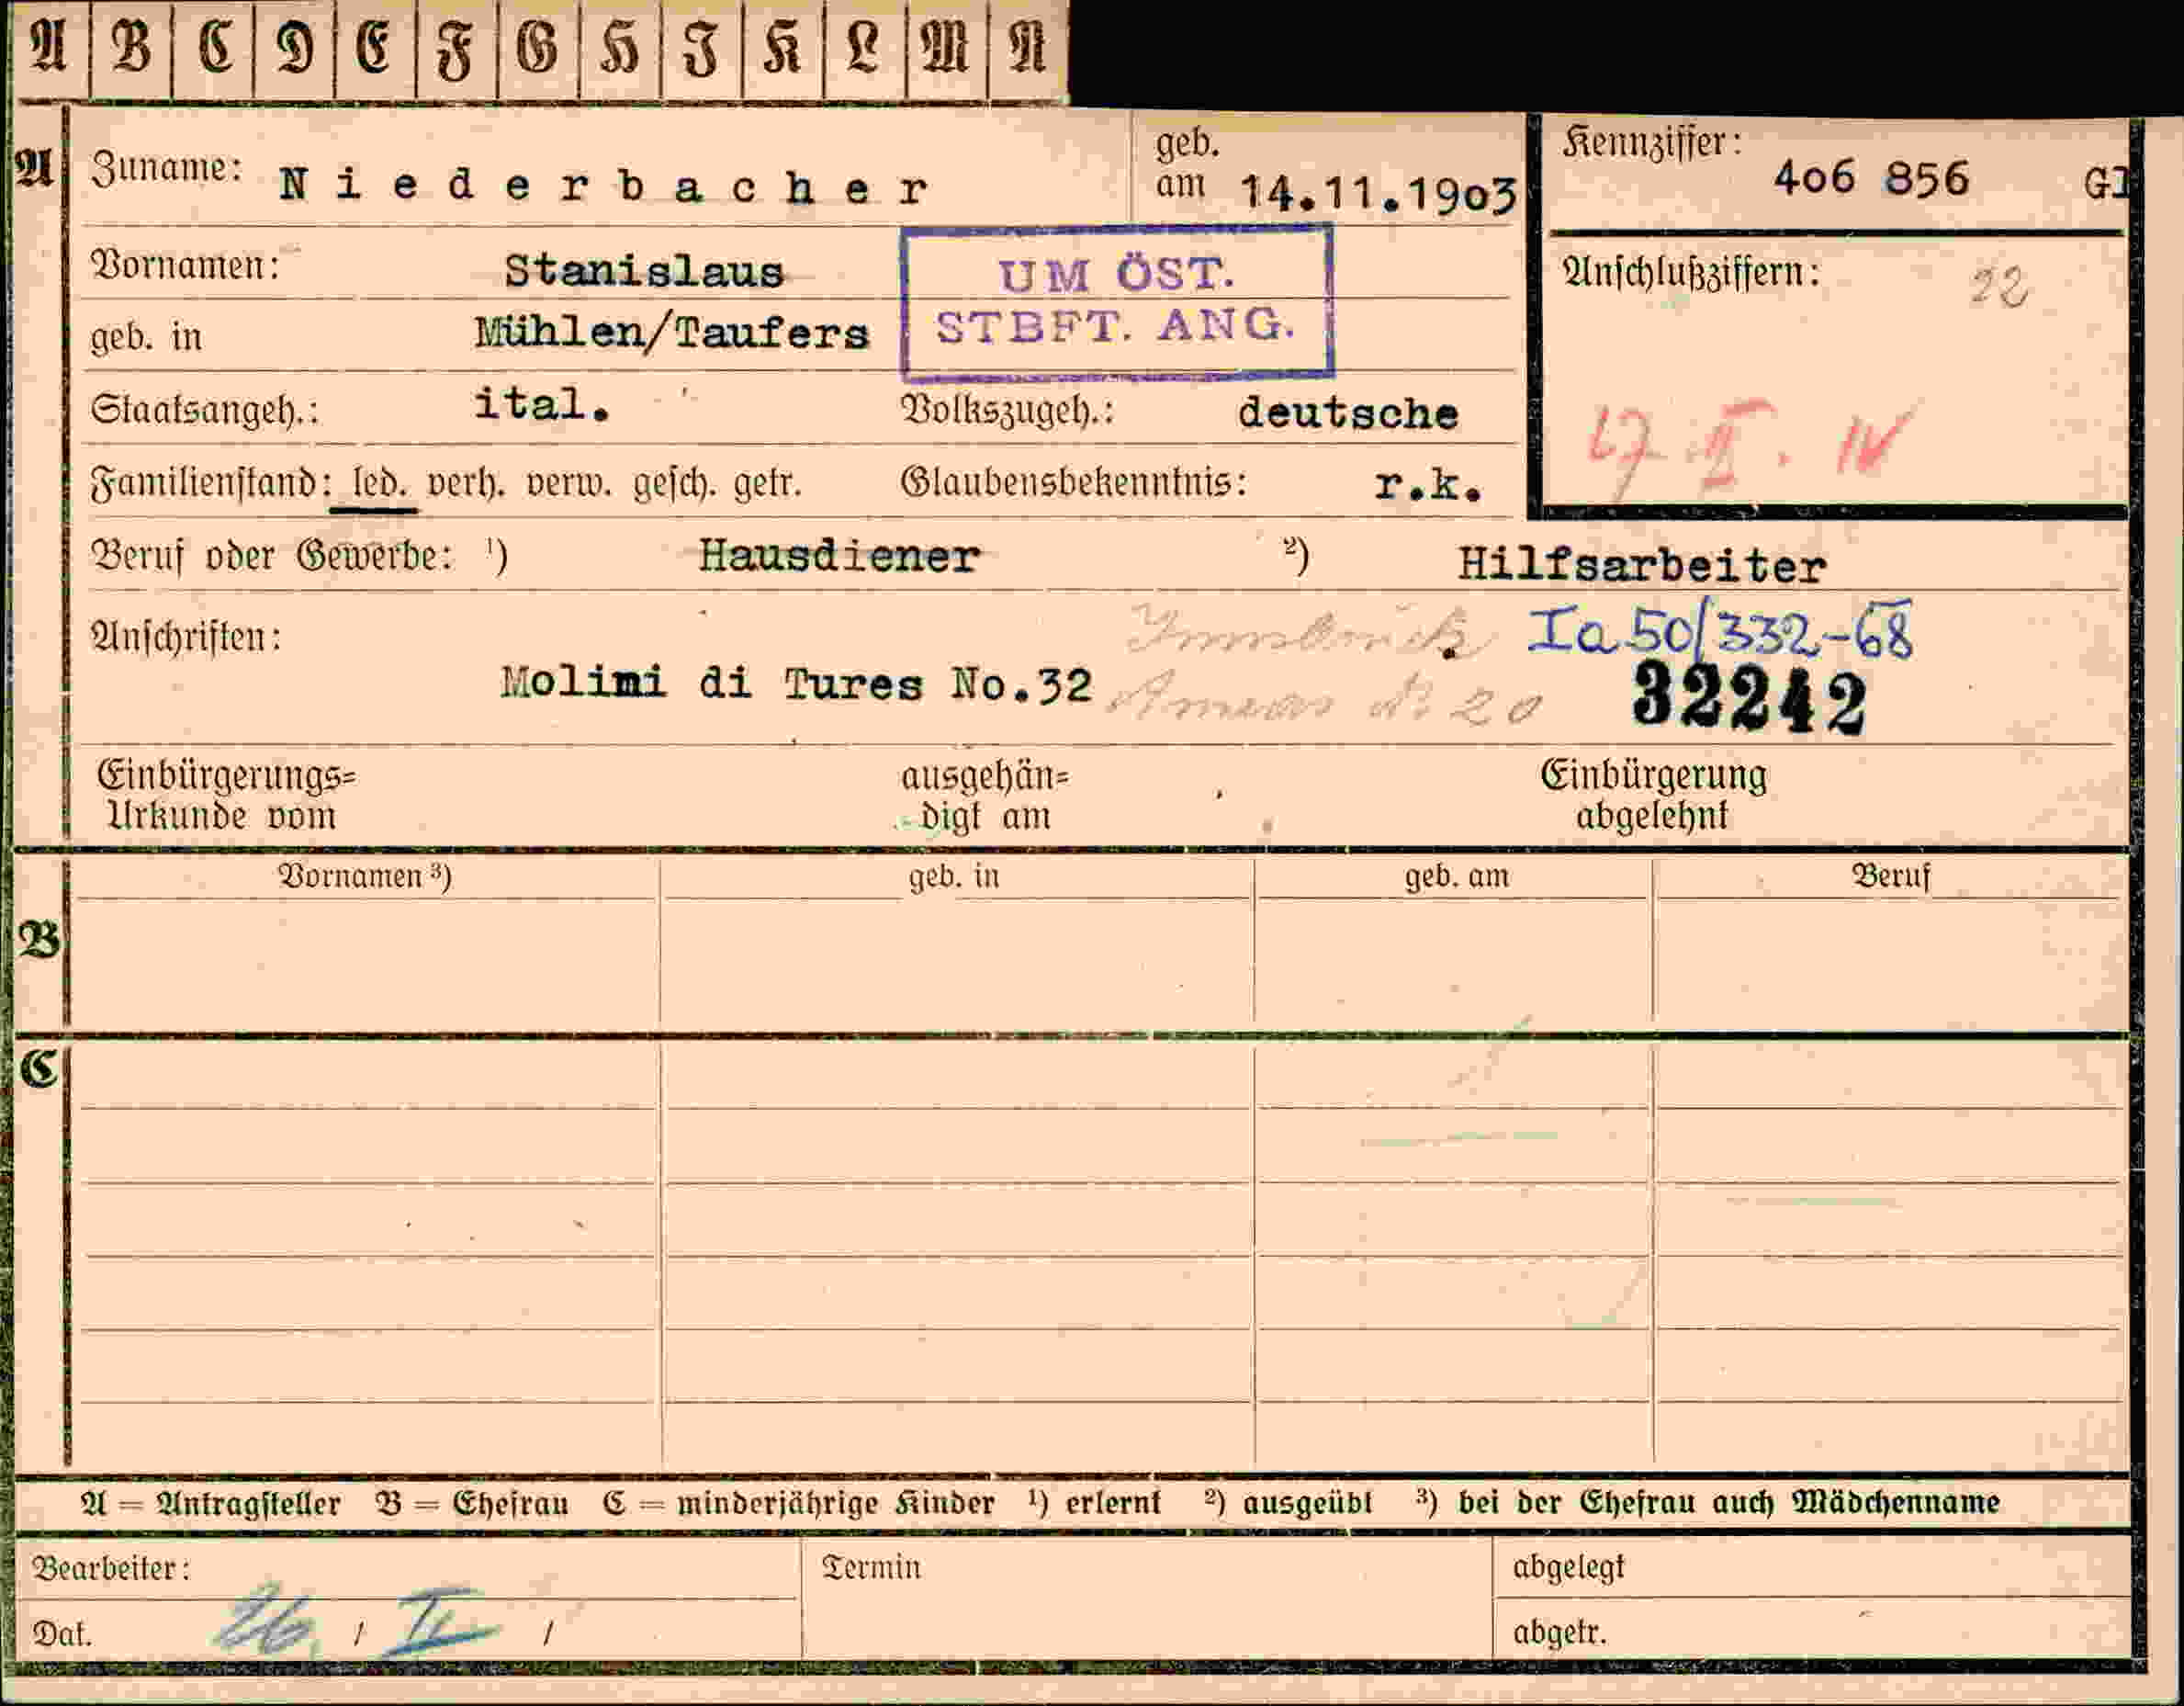 A B C D E F G H I K L M N
A Zuname: Niederbacher geb. am 14.11.1903
Kennziffer: 406 856 Gl
Vornamen: Stanislaus
UM ÖST.
STBFT. ANG.
Anschlußziffern: 22
geb. in Mühlen/Taufers
Staatsangeh.: ital. Volkszugeh.: deutsche
II. IV
Familienstand: led. verh. verw. gesch. getr. Glaubensbekenntnis: r.k.
Beruf oder Gewerbe: ¹) Hausdiener ²) Hilfsarbeiter
Anschriften: Innsbruck Ia 50/332-68
Molini di Tures No.32 20 32242
Einbürgerungs=
Urkunde vom
ausgehän=
digt am
Einbürgerung
abgelehnt
B Vornamen ³) geb. in geb. am Beruf
C
A = Antragsteller B = Ehefrau C = minderjährige Kinder ¹) erlernt ²) ausgeübt ³) bei der Ehefrau auch Mädchenname
Bearbeiter: Termin abgelegt
Dat. 26. / II / abgetr.